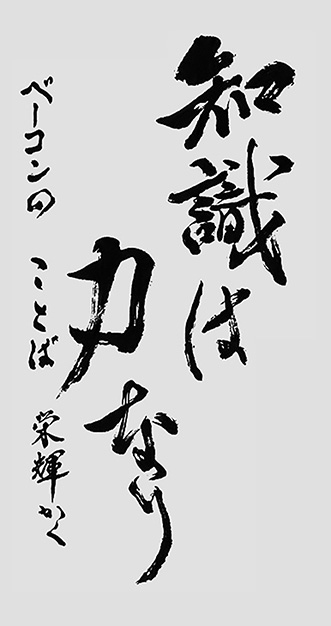 知識は
力なり
ベーコンの ことば 栄輝かく